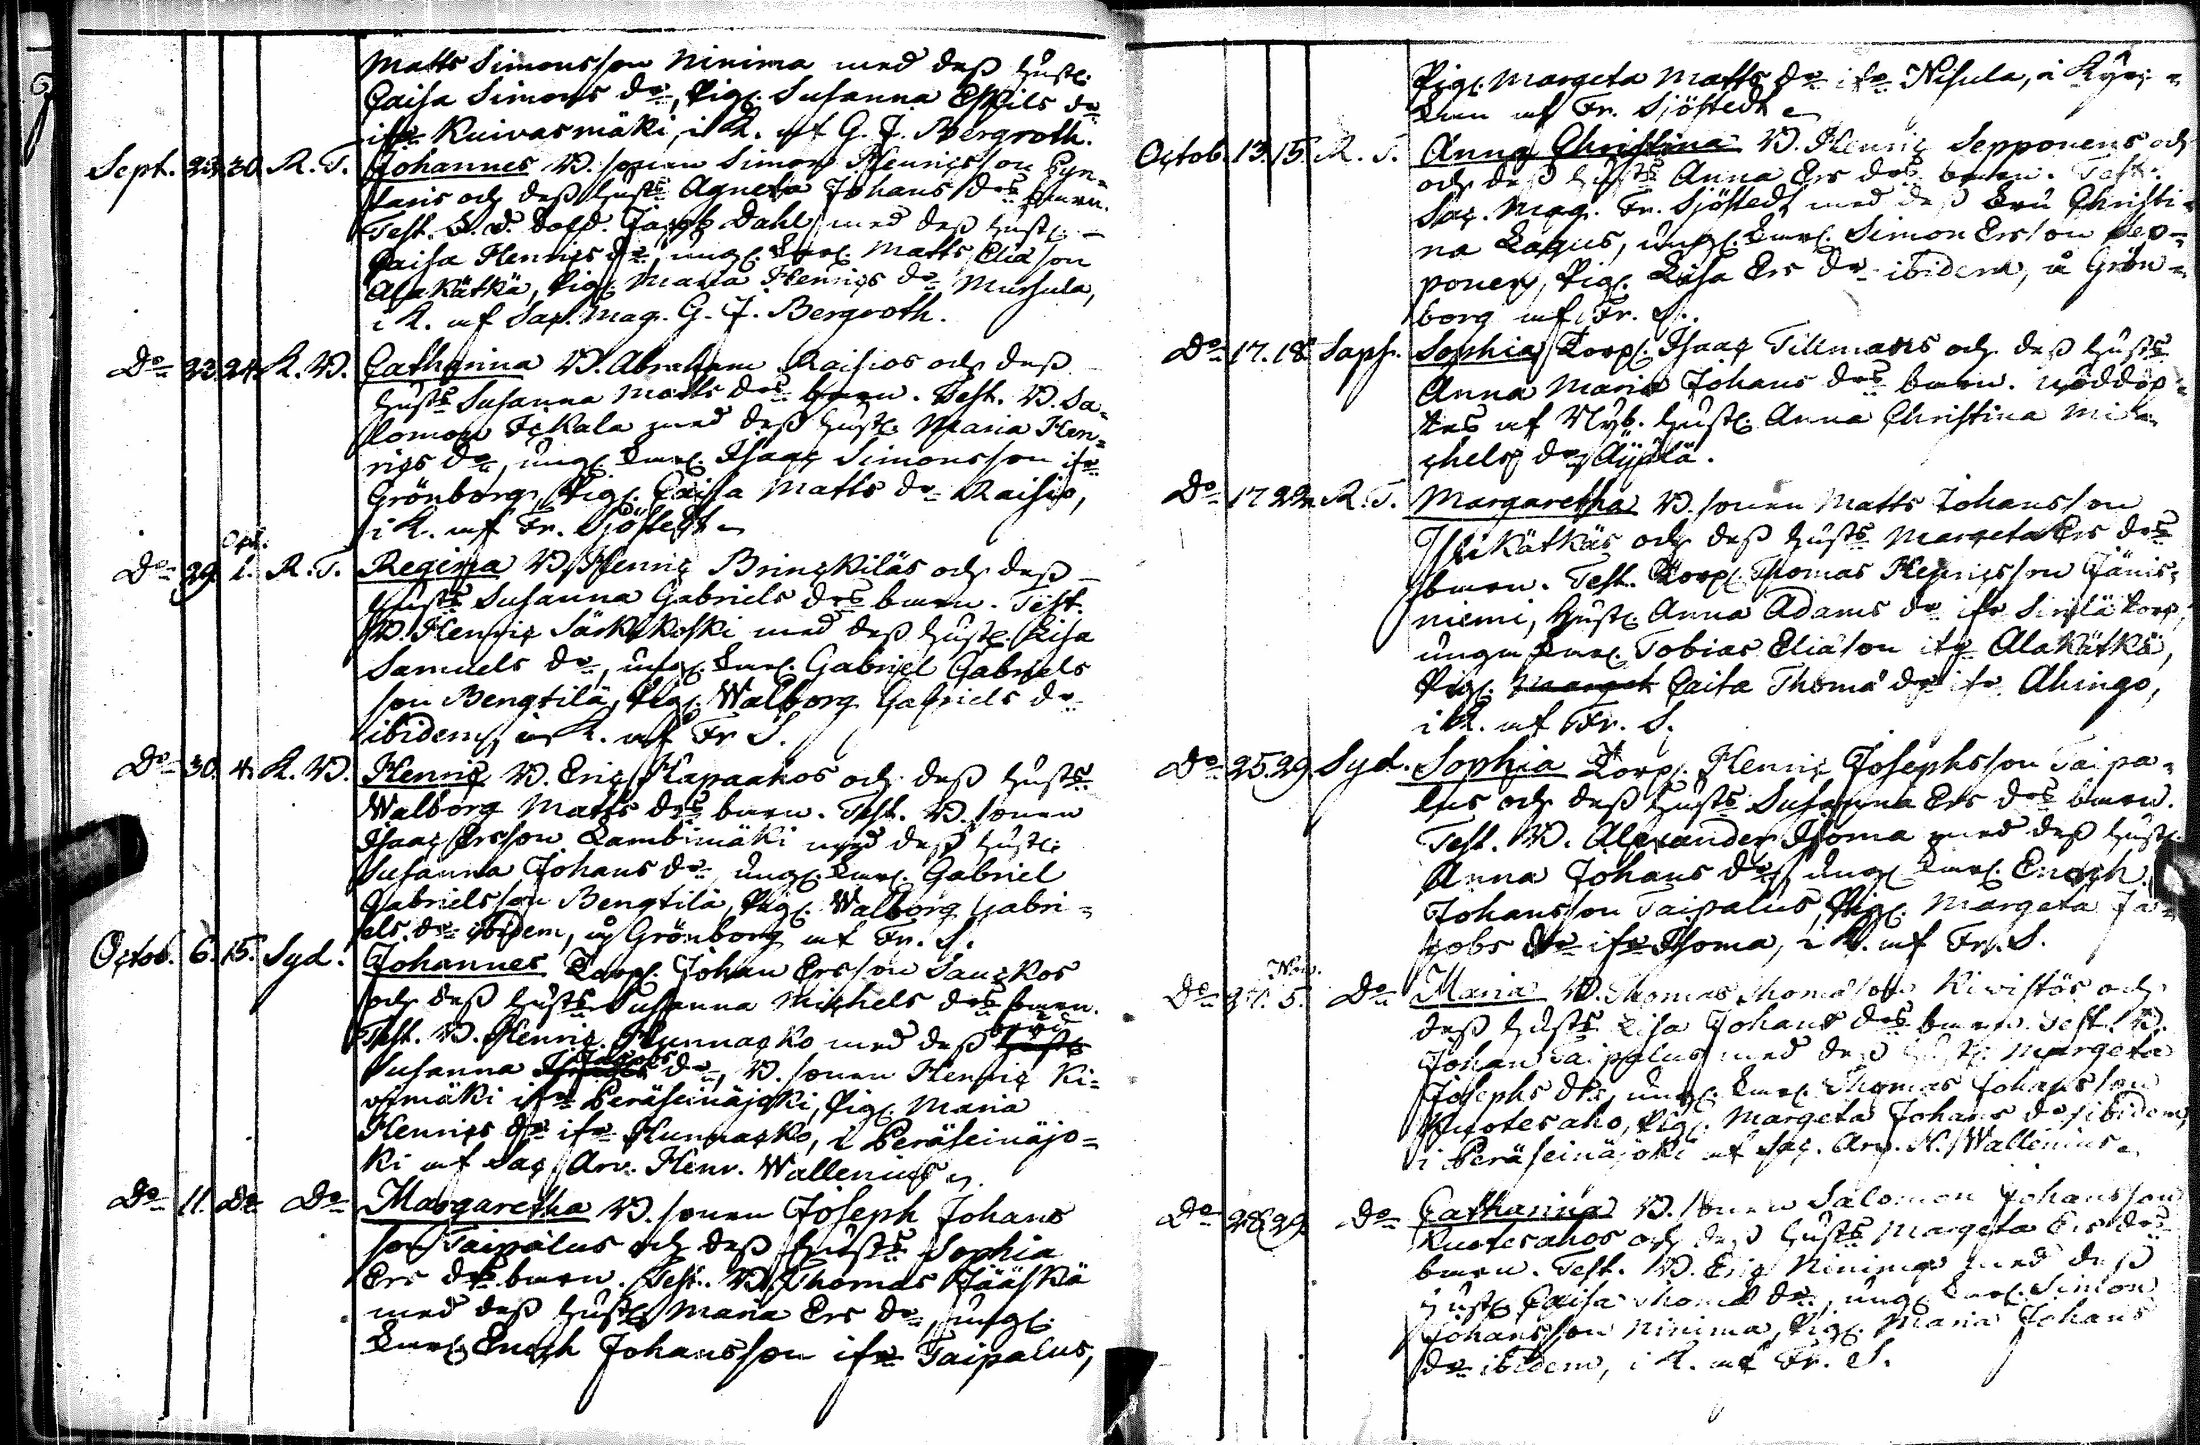 Matts Simonsson Ninima med dess hustr.
Caisa Simons dr, Pig. Susanna Eskils dr
ifr Kuivasmäki, i K. af G. J. Bergroth.
Sept. 23. 30. K. T. Johannes B. sonen Simon Henricsson
och dess hustrs Agneta Johans drs barn.
Test. Jacob Dahl med dess hustr.
Caisa Henrics dr, ung. Karl. Matts Eliäson
Alakätkä, Pig. Maria Henrics dr Mursula,
i K. af Sac. Mag. G. J. Bergroth.
Do 23. 24. K. B. Catharina B. Abraham Raisios och dess
hustrs Susanna Matts drs barn. Test. B. Sa-
lomon Jckala med dess hustr. Maria Hen-
rics dr, ung. Karl. Isaac Simonsson ifr
Grönborg, Pig. Caisa Matts dr Raisio,
i K. af Fr. Sjöstedt
Oct.
Do 29. 1. K. T. Regina B. Henric Brinckiläs och dess
hustrs Susanna Gabriels drs barn. Test.
B. Henric Särkikoski med dess hustr. Lisa
Samuels dr, ung. Karl. Gabriel Gabriels
son Bengtilä, Pig. Walborg Gabriels dr
ibidem, i K. af Fr S.
Do 30. 4. K. B. Henric B. Eric Hapaakos och dess hustrs
Walborg Matts drs barn. Test. B. sonen
Isaac Ersson Lambimäki med dess hustr.
Susanna Johans dr, ung. Karl. Gabriel
Gabrielsson Bengtilä, Pig. Walborg Gabri-
els dr ibidem, å Grönborg af Fr. S.
Octob. 6. 15. Syd. Johannes Torp. Johan Ersson Sauckos
och dess hustrs Susanna Michels drs barn.
Test. B. Henric Hunnacko med dess
Susanna Jacobs dr, B. sonen Henric Ki-
vimäki ifr Peräseinäjoki, Pig. Maria
Henrics dr ifr Hunnacko, i Peräseinäjo-
ki af Sac. Arv. Henr. Wallenius
Do 11. Do Do Margaretha B. sonen Joseph Johans
son Taipalus och dess hustrs Sophia
Ers drs barn. Test. B. Thomas Jääskä
med dess hustr. Maria Ers dr, ung.
Karl. Enoch Johansson ifr Taipalus,
Pig. Margeta Matts dr ifr Nisula, i Kyrc-
kan af Fr. Sjöstedt
Octob. 13. 15. K. T. Anna Christina B. Henric Sepponens och
och dess hustrs Anna Ers drs barn. Test.
Sac. Mag. Fr. Sjöstedt med dess Fru Christi-
na Lagus, ung. Karl. Simon Ersson Sep-
ponen, Pig. Lisa Ers dr ibidem, å Grön-
borg af Fr. S.
Do 17. 18. Saph. Sophia Torp. Isaac Tillmans och dess hustrs
Anna Maria Johans drs barn. Nöddöp-
tes af Nyb. hustr. Anna Christina Mi-
chels dr Äijälä.
Do 17 22. K. T. Margaretha B. sonen Matts Johansson
Ylikätkäs och dess hustrs Margeta Ers drs
barn. Test. Torp. Thomas Henricsson Jänis-
niemi, Hustr. Anna Adams dr ifr Sirilä torp,
unga Karl. Tobias Eliäson ifr Alakätkä,
Pig. Marget Caisa Thomä dr ifr Ahingo,
i K. af Fr. S.
Do 25. 29. Syd. Sophia Torp. Henric Josephsson Taipa-
lus och dess hustrs Susanna Ers drs barn.
Test. B. Alexander Ihoma med dess hustr.
Anna Johans dr, ung. Karl. Enoch
Johansson Taipalus, Pig. Margeta Ja-
cobs dr ifr Ihoma, i K. af Fr. S.
Nov.
Do 31. 5. Do Maria B. Thomas Thomäson Kivistös och
dess hustrs Lisa Johans drs barn. Test. B.
Johan Taipalus med dess hustr. Margeta
Josephs dr, ung. Karl. Thomas Johansson
Kuotesaho, Pig. Margeta Johans dr ibidem,
i Peräseinäjoki af Sac. Arv. H. Wallenius
Do 28. 29. Do Catharina B. sonen Salomon Johansson
Kuotesahos och dess hustrs Margeta Ers drs
barn. Test. B. Eric Ninima med dess
hustr. Caisa Thomä dr, ung. Karl. Simon
Johansson Ninima, Pig. Maria Johans
dr ibidem, i K. af Fr. S.